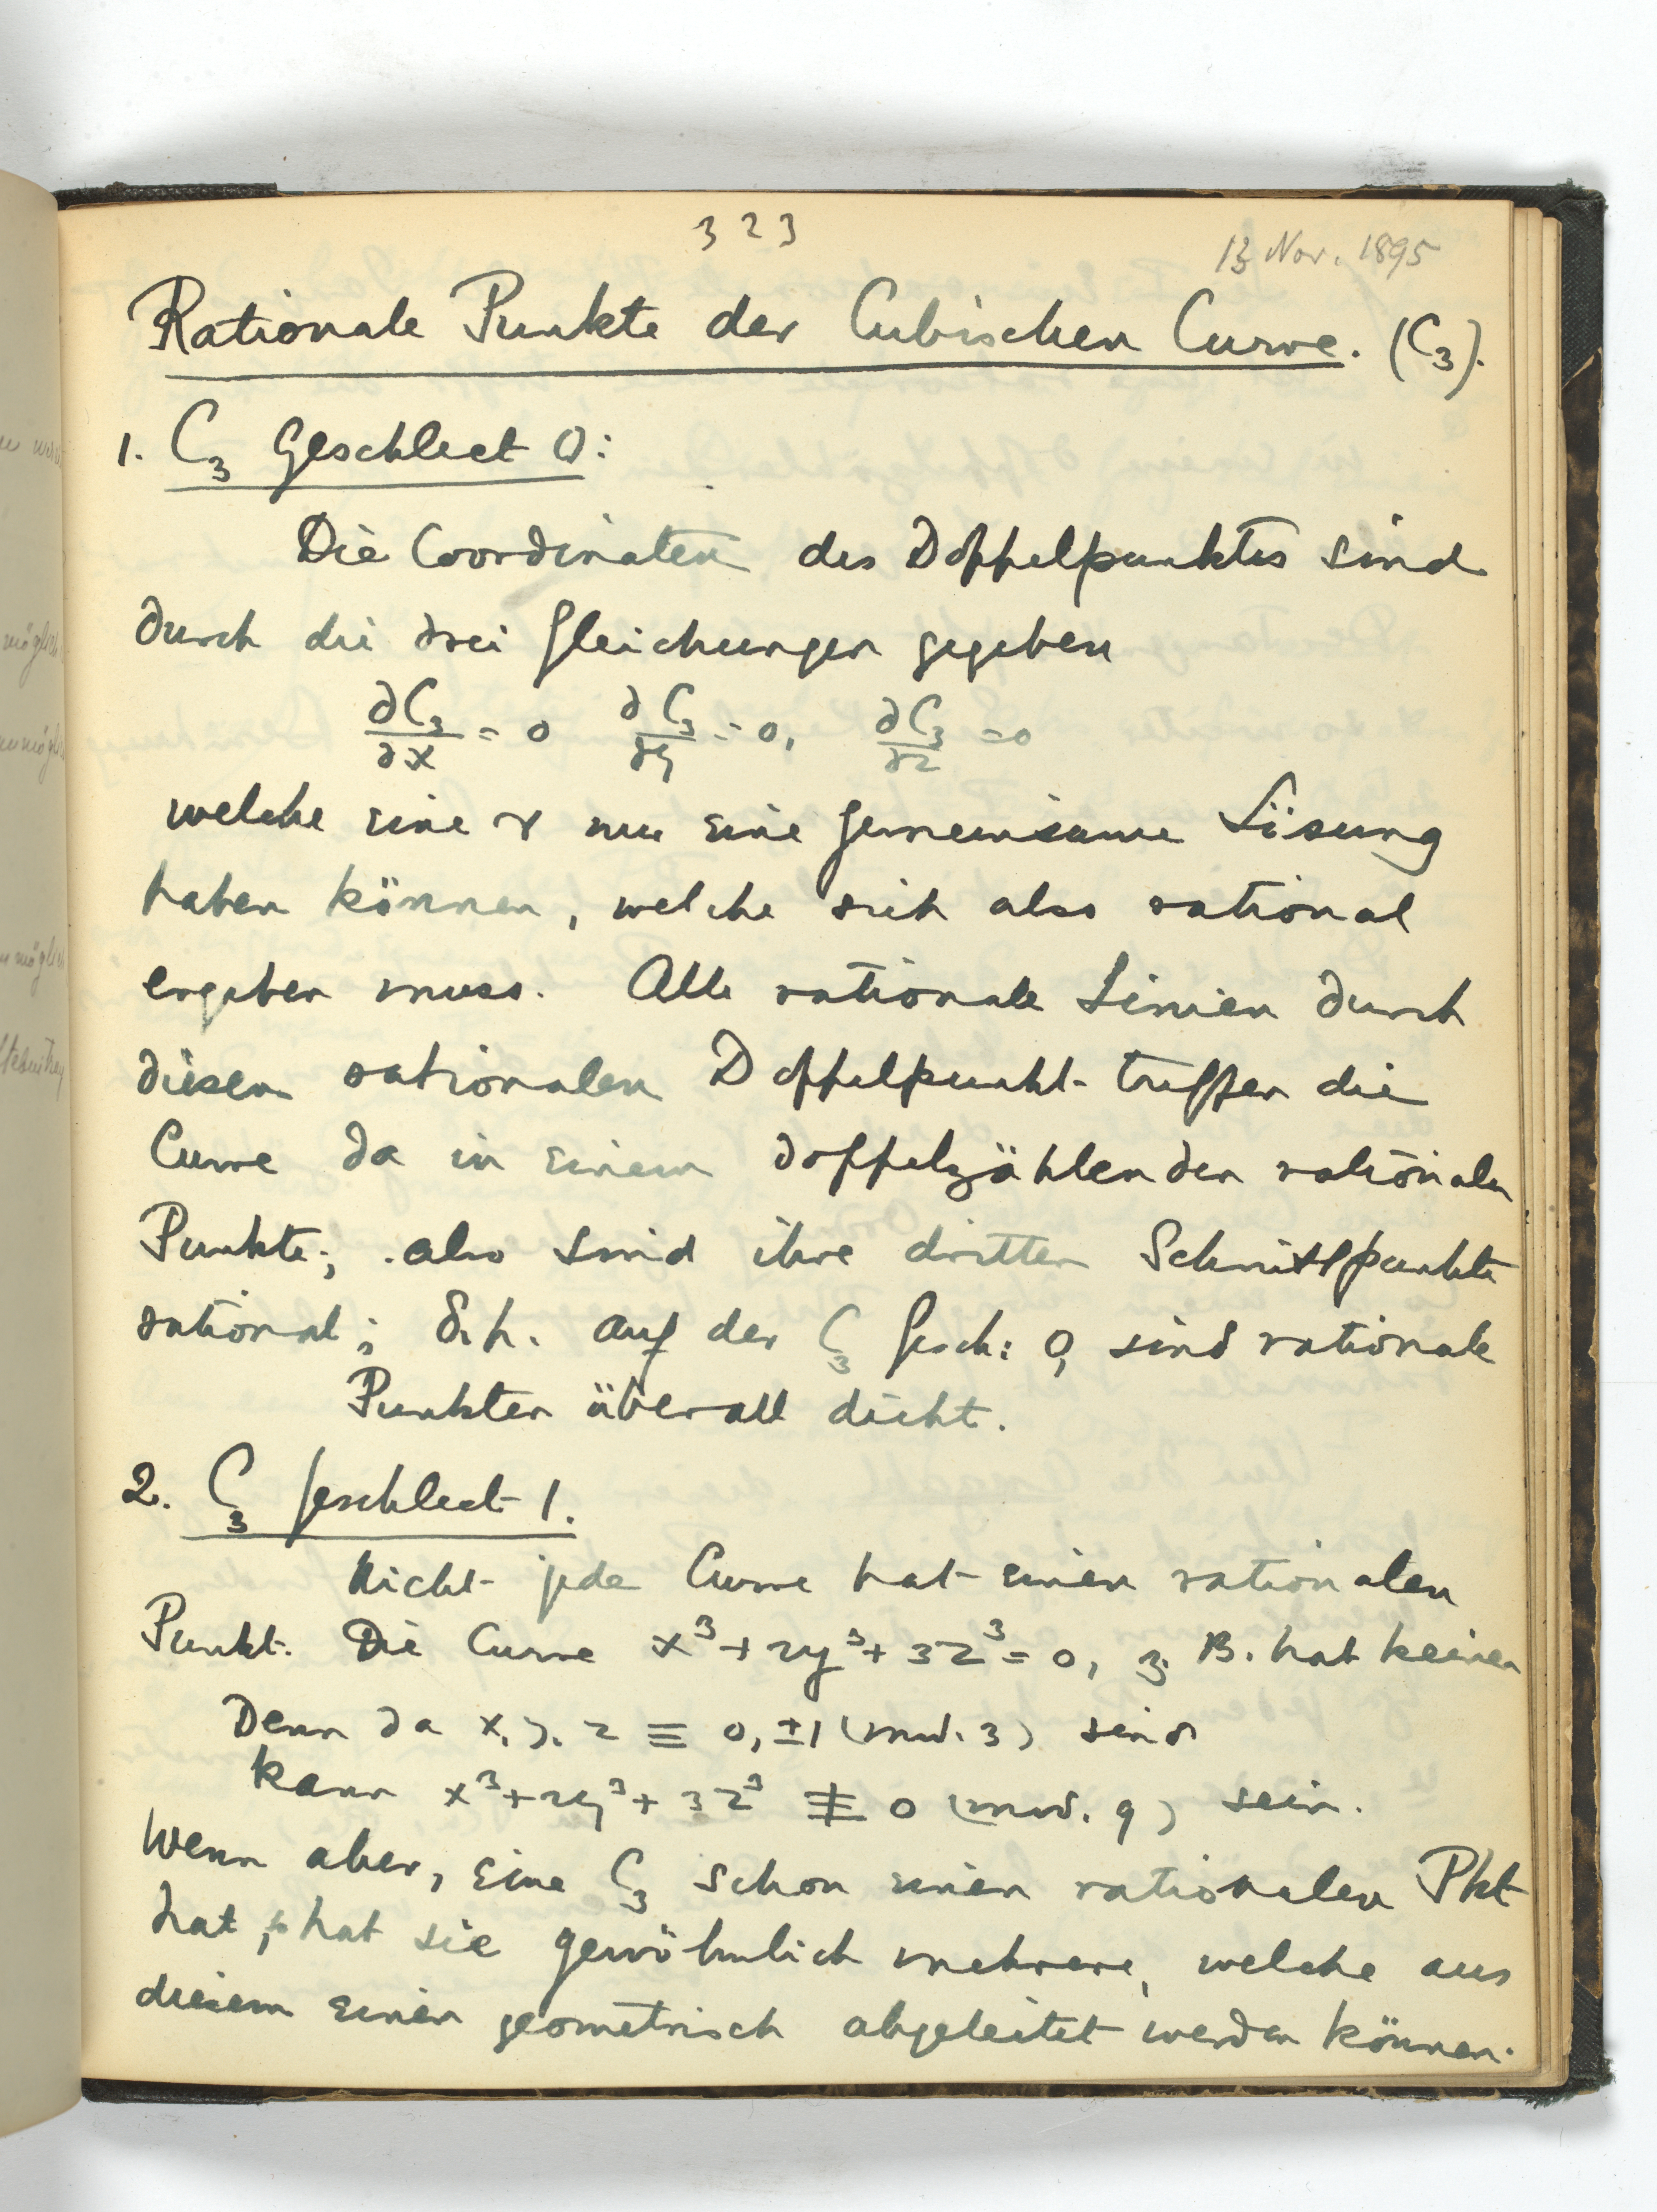 323
13 Nov. 1895
Rationale Punkte der Cubischen Curve. (C₃).
1. C₃ Geschlect 0:
Die Coordinaten des Doppelpunktes sind
durch die drei Gleichungen gegeben
∂C₃/∂x = 0 ∂C₃/∂y = 0, ∂C₃/∂z = 0
welche eine & nur eine gemeinsame Lösung
haben können, welche sich also rational
ergeben muss. Alle rationale Linien durch
diesen rationalen Doppelpunkt treffen die
Curve da in einem doppelzählenden rationalen
Punkte; also sind ihre dritten Schnittpunkte
rational; d.h. auf der C₃ Gesch: 0, sind rationale
Punkten überall dicht.
2. C₃ Geschlect 1.
Nicht jede Curve hat einen rationalen
Punkt. Die Curve x³+2y³+3z³=0, z. B. hat keinen
Denn da x, y, z ≡ 0, ±1 (mod. 3) sind
kann x³+2y³+3z³ ≢ 0 (mod. 9) sein.
Wenn aber, eine C₃ schon einen rationalen Pkt
hat, so hat sie gewöhnlich mehrere, welche aus
diesem einen geometrisch abgeleitet werden können.
möglich
unmöglich